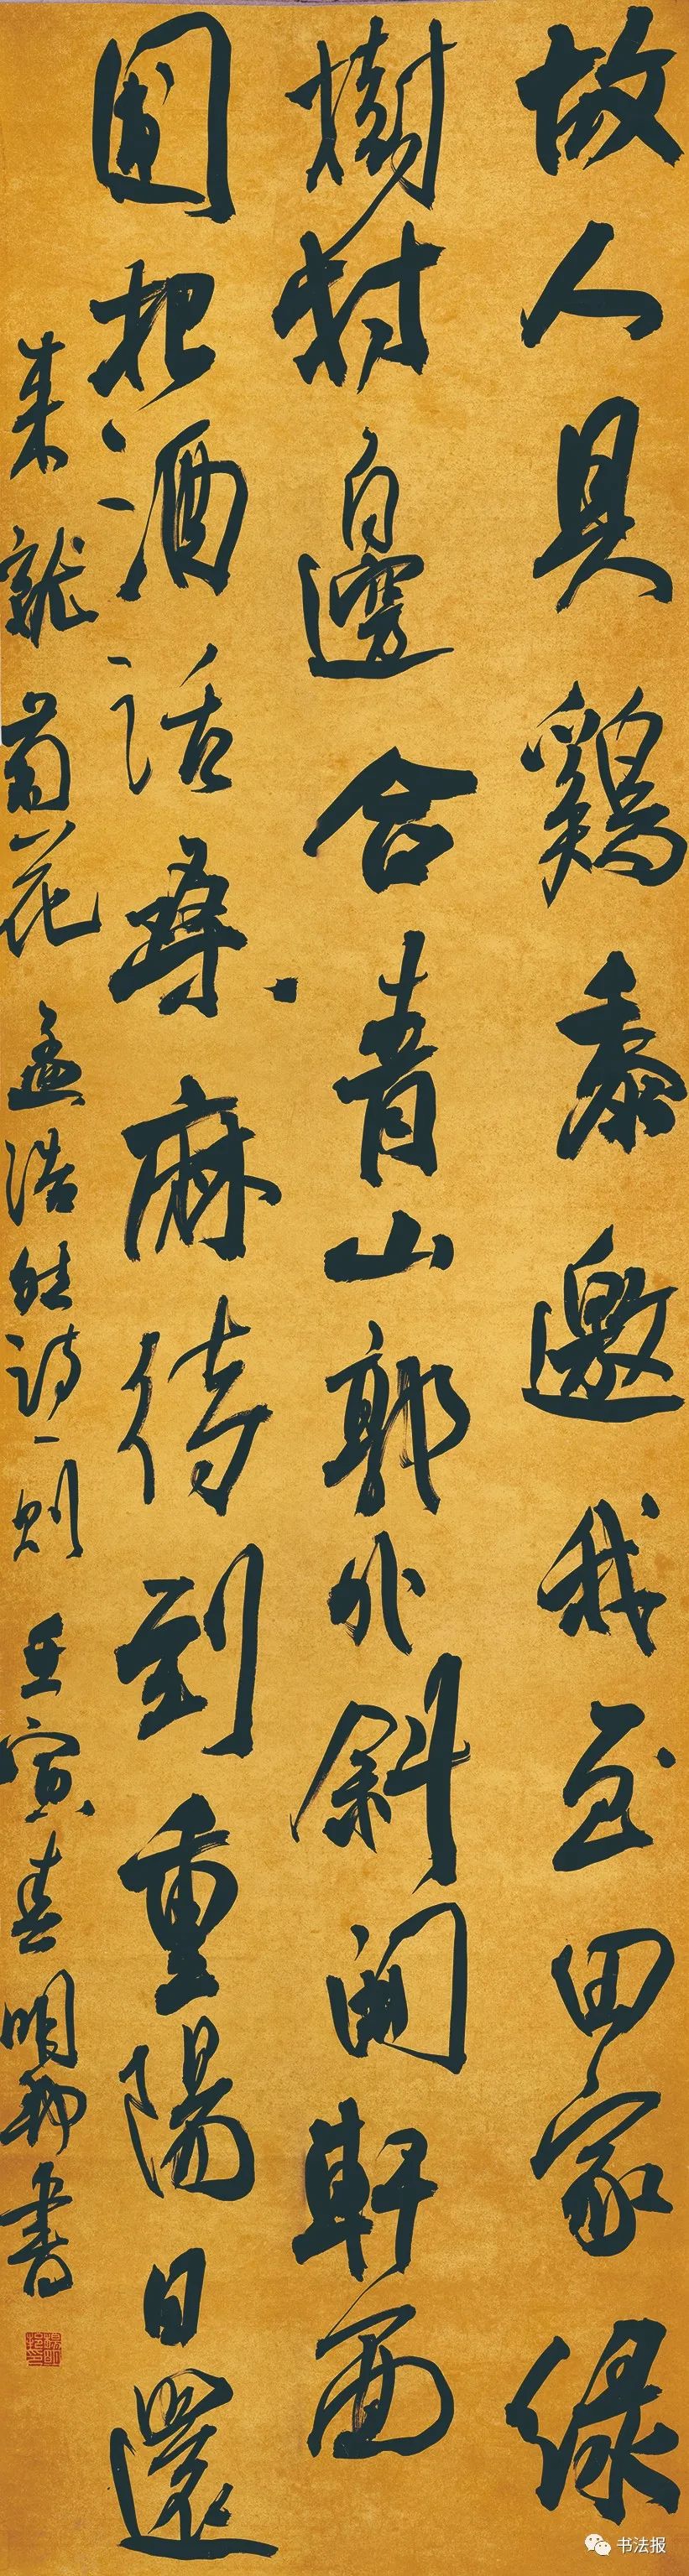 故人具鷄黍邀我至田家緑
樹村邊合青山郭外斜開軒面
圃把酒話桑麻待到重陽日還
来就菊花 孟浩然詩一則 壬寅春明書
书法报